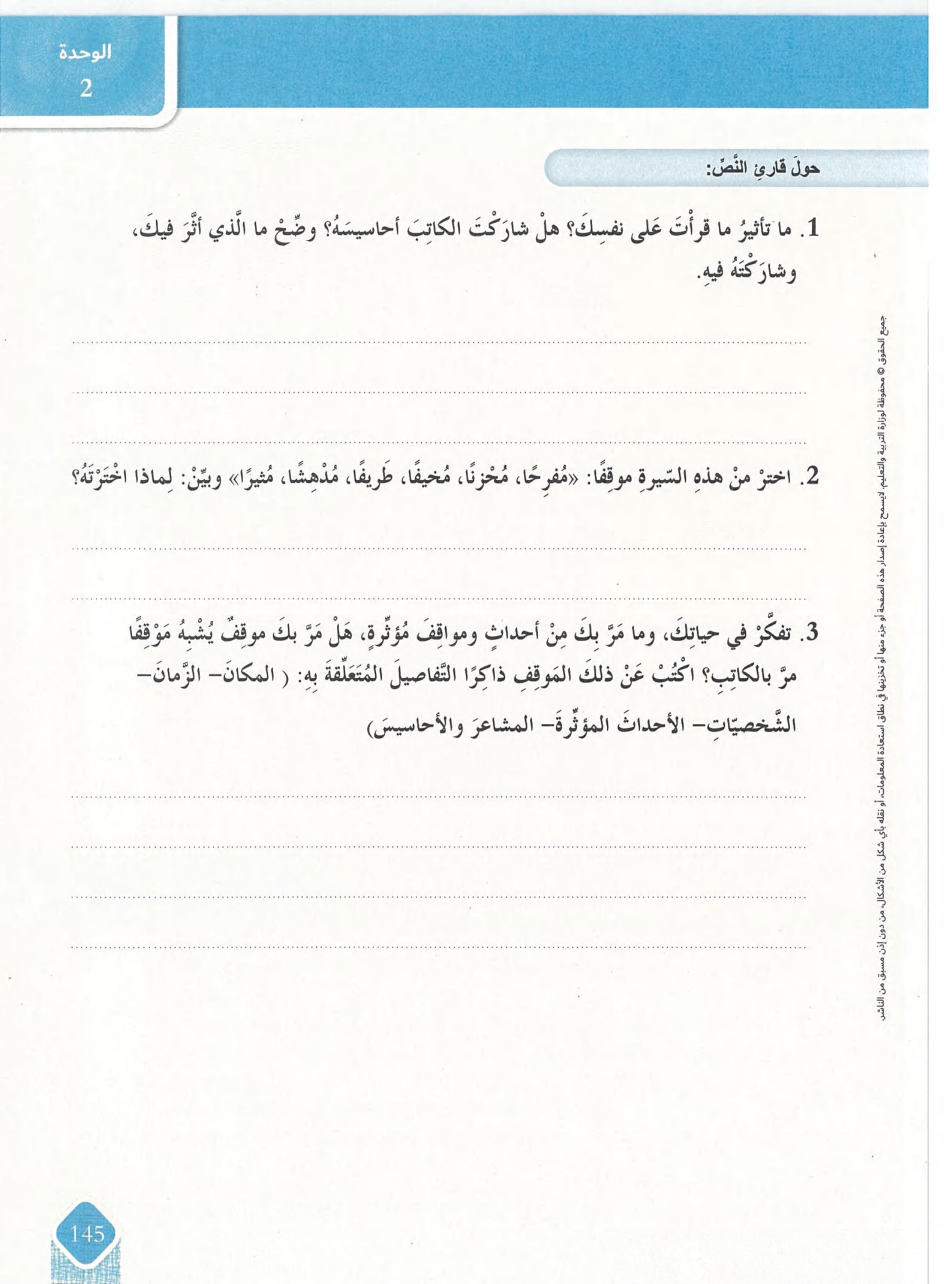 الوحدة
2
حولَ قارئِ النَّصِّ:
1. ما تأثيرُ ما قرأْتَ عَلى نفسِكَ؟ هلْ شارَكْتَ الكاتِبَ أحاسيسَهُ؟ وضِّحْ ما الَّذي أثَّرَ فيكَ،
وشارَكْتَهُ فيهِ.
2. اخترْ منْ هذهِ السّيرةِ موقفًا: «مُفرِحًا، مُحْزنًا، مُخيفًا، طَريفًا، مُدْهِشًا، مُثيرًا» وبيِّنْ: لِماذا اخْتَرْتَهُ؟
3. تفكَّرْ في حياتِكَ، وما مَرَّ بِكَ مِنْ أحداثٍ ومواقِفَ مُؤثِّرةٍ، هَلْ مَرَّ بكَ موقِفٌ يُشْبِهُ مَوْقِفًا
مرَّ بالكاتِبِ؟ اكْتُبْ عَنْ ذلكَ المَوقِفِ ذاكِرًا التَّفاصيلَ المُتَعَلِّقةَ بِهِ: ( المكانَ– الزَّمانَ–
الشَّخصيّاتِ– الأحداثَ المؤثِّرةَ– المشاعرَ والأحاسيسَ)
جميع الحقوق © محفوظة لوزارة التربية والتعليم. لايسمح بإعادة إصدار هذه الصفحة أو جزء منها أو تخزينها في نطاق استعادة المعلومات، أو نقله بأي شكل من الأشكال، من دون إذن مسبق من الناشر.
145